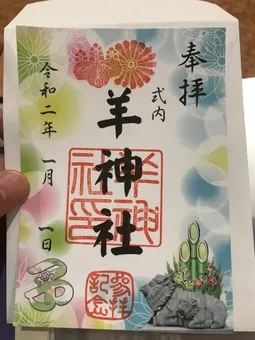 奉拝
式内
羊神社
令和二年 一月 一日
子
羊神社印
参拝記念